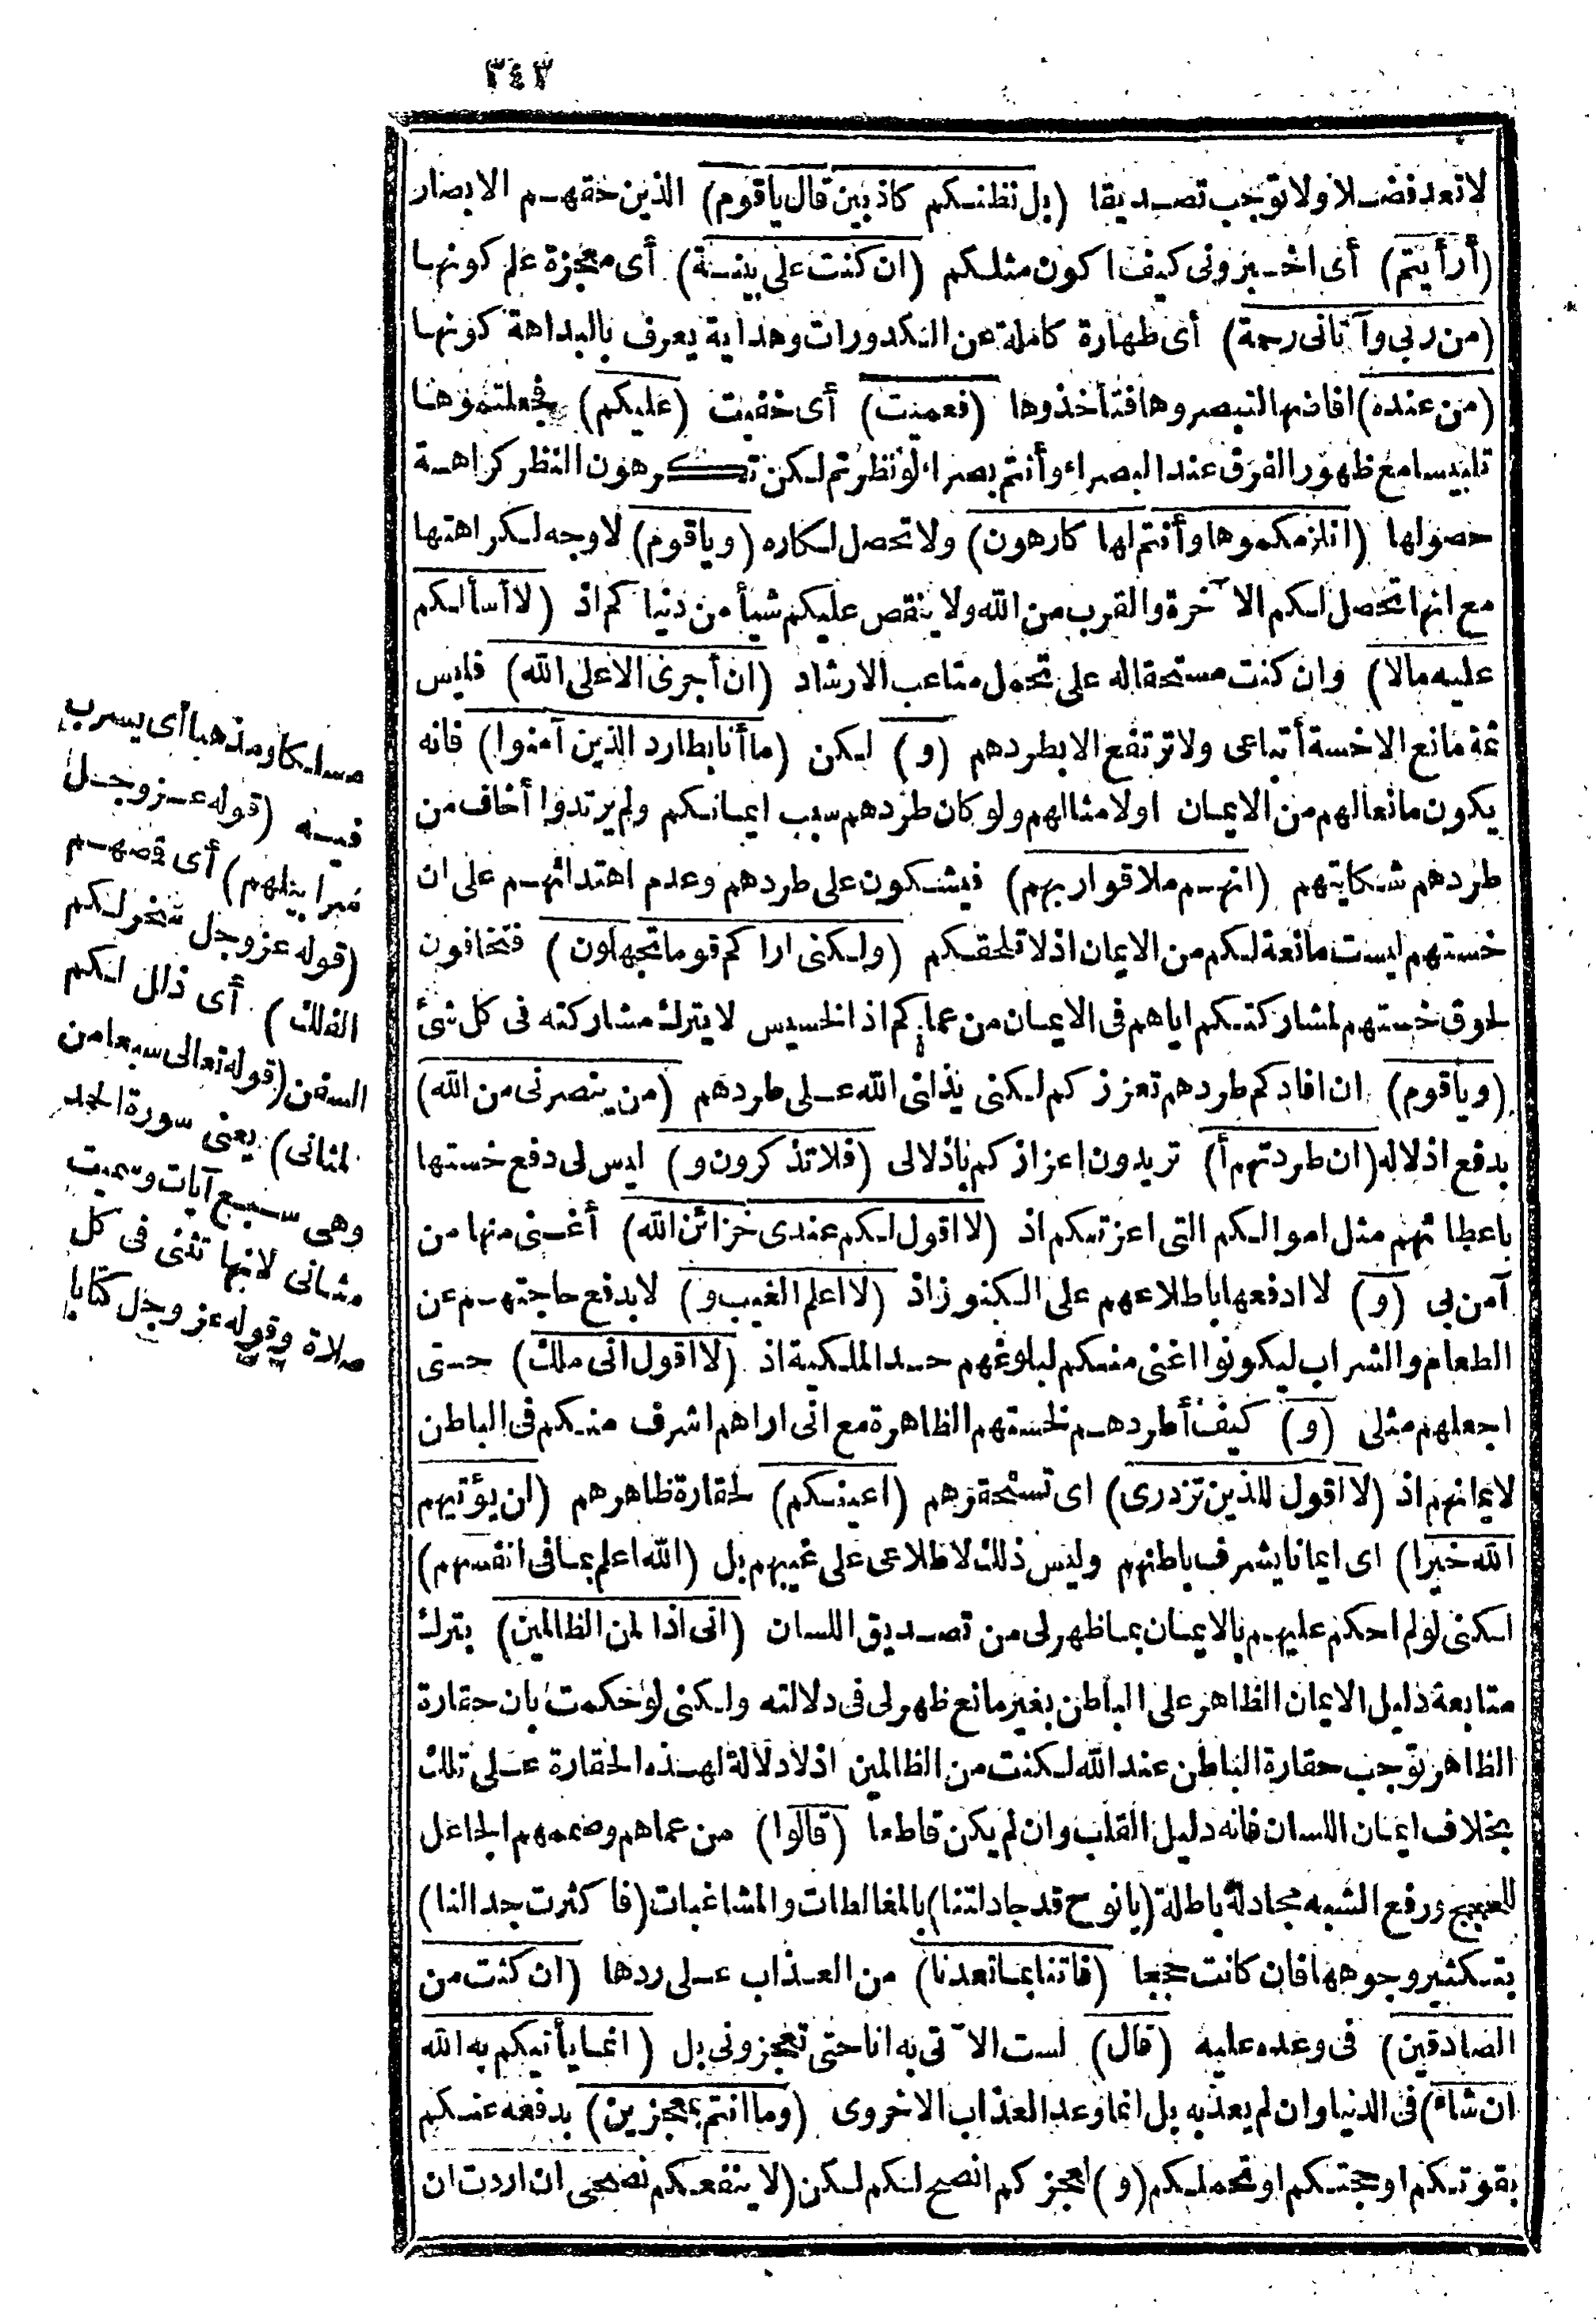 ٣٤٣
لا تعد فضلا ولا توجب تصديقا (بل نظنكم كاذبين قال ياقوم) الذين حقهم الابصار
(أرأيتم) أى اخبرونى كيف اكون مثلكم (ان كنت على بينة) أى معجزة علم كونها
(من ربى وآتانى رحمة) أى طهارة كاملة عن الكدورات وهداية يعرف بالبداهة كونها
(من عنده) افاضها لتبصروها فتأخذوها (فعميت) أى خفيت (عليكم) فجعلتموها
تلبيسا مع ظهور الفرق عند البصراء وأنتم بصراء لو نظرتم لكن تكرهون النظر كراهة
حصولها (انلزمكموها وأنتم لها كارهون) ولا تحصل لكاره (وياقوم) لا وجه لكراهتها
مع انها تحصل لكم الآخرة والقرب من الله ولا ينقص عليكم شيأ من دنياكم اذ (لا أسألكم
عليه مالا) وان كنت مستحقا له على تحمل متاعب الارشاد (ان أجرى الا على الله) فليس
ثمة مانع الاخسة أتباعى ولا ترتفع الا بطردهم (و) لكن (ما أنا بطارد الذين آمنوا) فانه
يكون مانعا لهم من الايمان اولا مثالهم ولو كان طردهم سبب ايمانكم ولم يرتدوا أخاف من
طردهم شكايتهم (انهم ملاقوا ربهم) فيشكون على طردهم وعدم اهتدائهم على ان
خستهم ليست مانعة لكم من الايمان اذ لا تلحقكم (ولكنى اراكم قوما تجهلون) فتخافون
لحوق خستهم لمشاركتكم اياهم فى الايمان من عماكم اذ الخسيس لا يترك مشاركته فى كل شئ
(وياقوم) ان افادكم طردهم تعززكم لكنى يذلنى الله على طردهم (من ينصرنى من الله)
بدفع اذلاله (ان طردتهم أ) تريدون اعزازكم باذلالى (فلا تذكرون و) ليس لى دفع خستها
باعطائهم مثل اموالكم التى اعزتكم اذ (لا اقول لكم عندى خزائن الله) أغنى منها من
آمن بى (و) لا ادفعها باطلاعهم على الكنوز اذ (لا اعلم الغيب و) لا بدفع حاجتهم عن
الطعام والشراب ليكونوا اغنى منكم لبلوغهم حد الملكية اذ (لا اقول انى ملك) حتى
اجعلهم مثلى (و) كيف أطردهم لخستهم الظاهرة مع انى اراهم اشرف منكم فى الباطن
لايمانهم اذ (لا اقول للذين تزدرى) اى تستحقرهم (اعينكم) لحقارة ظاهرهم (ان يؤتيهم
الله خيرا) اى ايمانا يشرف باطنهم وليس ذلك لاطلاعى على غيبهم بل (الله اعلم بما فى انفسهم)
لكنى لو لم احكم عليهم بالايمان بما ظهر لى من تصديق اللسان (انى اذا لمن الظالمين) بترك
متابعة دليل الايمان الظاهر على الباطن بغير مانع ظهر لى فى دلالته ولكنى لو حكمت بان حقارة
الظاهر توجب حقارة الباطن عند الله لكنت من الظالمين اذ لا دلالة لهذه الحقارة على تلك
بخلاف ايمان اللسان فانه دليل القلب وان لم يكن قاطعا (قالوا) من عماهم وصممهم الجاعل
للحجج ورفع الشبه مجادلة باطلة (يا نوح قد جادلتنا) بالمغالطات والمشاغبات (فاكثرت جدالنا)
بتكثير وجوهها فان كانت حججا (فاتنا بما تعدنا) من العذاب على ردها (ان كنت من
الصادقين) فى وعده عليه (قال) لست الآتى به انا حتى تعجزونى بل (انما يأتيكم به الله
ان شاء) فى الدنيا وان لم يعذبه بل انما وعد العذاب الاخروى (وما انتم بمعجزين) بدفعه عنكم
بقوتكم او حجتكم او تحملكم (و) لعجزكم انصح لكم لكن (لا ينفعكم نصحى ان اردت ان
مسلكا ومذهبا أى يسرب
فيه (قوله عز وجل
سرابيلهم) أى قصهم
(قوله عز وجل سخر لكم
الفلك) أى ذلل لكم
السفن (قوله تعالى سبعا من
المثانى) يعنى سورة الحمد
وهى سبع آيات وسميت
مثانى لانها تثنى فى كل
صلاة وقوله عز وجل كتابا